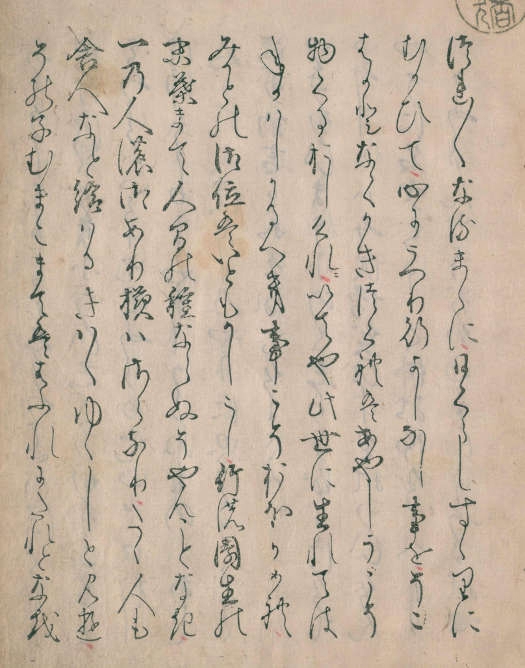 つれ〳〵なるまゝに日くらしすゝりに
むかひて心にうつり行よしなし事をそこ
はかとなくかきつくれはあやしうこそ
物くるおしけれいてや此世に生れては
ねかはしかるへき事こそおほかめれ
みかとの御位はいともかしこし竹の園生の
末葉まて人間の種ならぬそやんことなき
一乃人の御あり様ハさらなりたゝ人も
舎人なと給はるきハゝゆゝしと見ゆ
その子むまこまてははふれにたれとなを